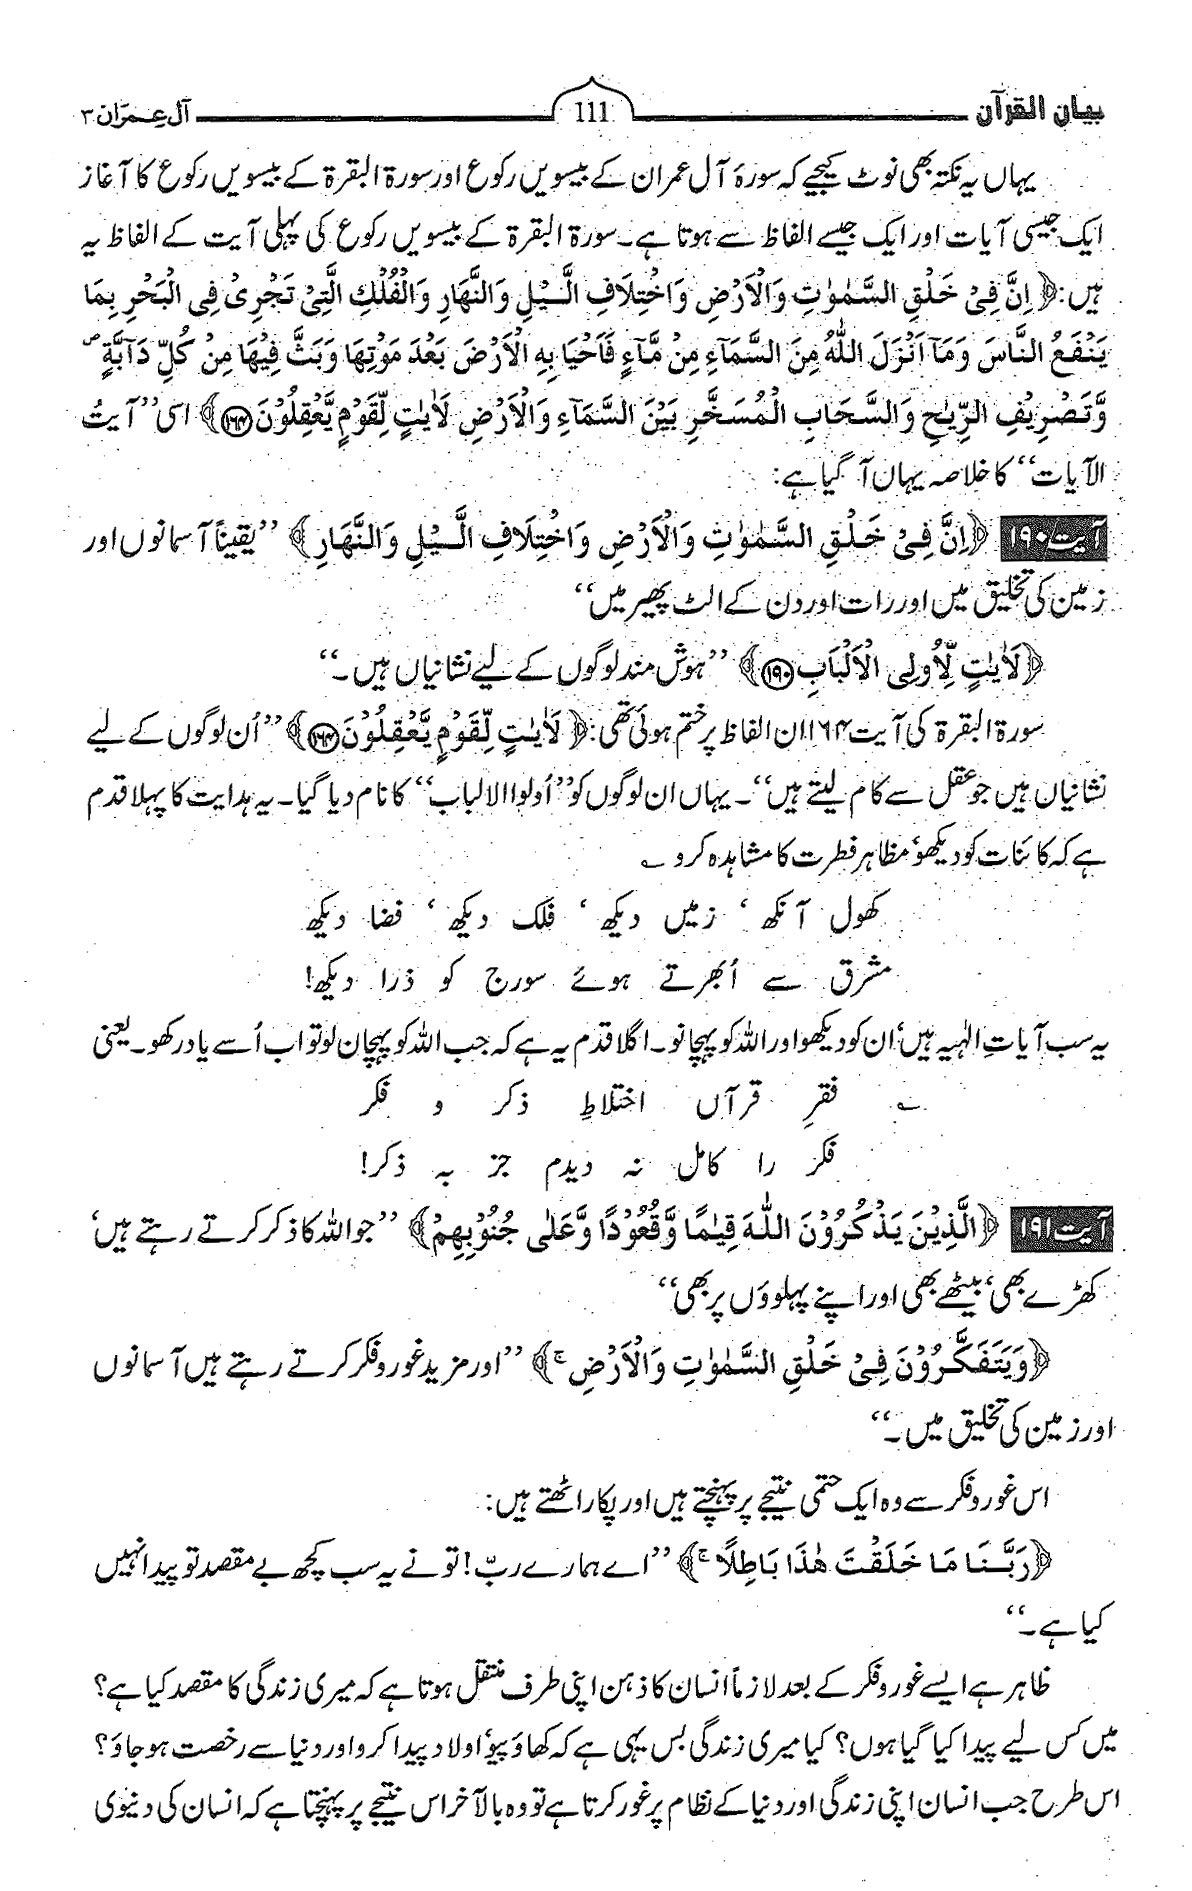 بیان القرآن 111 آل عمران ۳
یہاں یہ نکتہ بھی نوٹ کیجیے کہ سورۂ آل عمران کے بیسویں رکوع اور سورۃ البقرۃ کے بیسویں رکوع کا آغاز
ایک جیسی آیات اور ایک جیسے الفاظ سے ہوتا ہے۔ سورۃ البقرۃ کے بیسویں رکوع کی پہلی آیت کے الفاظ یہ
ہیں: ﴿اِنَّ فِیْ خَلْقِ السَّمٰوٰتِ وَالْاَرْضِ وَاخْتِلَافِ الَّیْلِ وَالنَّھَارِ وَالْفُلْکِ الَّتِیْ تَجْرِیْ فِی الْبَحْرِ بِمَا
یَنْفَعُ النَّاسَ وَمَآ اَنْزَلَ اللّٰہُ مِنَ السَّمَآءِ مِنْ مَّآءٍ فَاَحْیَا بِہِ الْاَرْضَ بَعْدَ مَوْتِھَا وَبَثَّ فِیْھَا مِنْ کُلِّ دَآبَّۃٍ ص
وَّتَصْرِیْفِ الرِّیٰحِ وَالسَّحَابِ الْمُسَخَّرِ بَیْنَ السَّمَآءِ وَالْاَرْضِ لَاٰیٰتٍ لِّقَوْمٍ یَّعْقِلُوْنَ ﴿۱۶۴﴾﴾ اسی ’’آیتُ
الآیات‘‘ کا خلاصہ یہاں آ گیا ہے:
آیت ۱۹۰ ﴿اِنَّ فِیْ خَلْقِ السَّمٰوٰتِ وَالْاَرْضِ وَاخْتِلَافِ الَّیْلِ وَالنَّھَارِ﴾ ’’یقیناً آسمانوں اور
زمین کی تخلیق میں اور رات اور دن کے الٹ پھیر میں‘‘
﴿لَاٰیٰتٍ لِّاُولِی الْاَلْبَابِ ﴿۱۹۰﴾﴾ ’’ہوش مند لوگوں کے لیے نشانیاں ہیں۔‘‘
سورۃ البقرۃ کی آیت ۱۶۴ ان الفاظ پر ختم ہوئی تھی: ﴿لَاٰیٰتٍ لِّقَوْمٍ یَّعْقِلُوْنَ ﴿۱۶۴﴾﴾ ’’اُن لوگوں کے لیے
نشانیاں ہیں جو عقل سے کام لیتے ہیں‘‘۔ یہاں ان لوگوں کو ’’اُولوا الالباب‘‘ کا نام دیا گیا۔ یہ ہدایت کا پہلا قدم
ہے کہ کائنات کو دیکھو‘ مظاہر فطرت کا مشاہدہ کرو ؎
کھول آنکھ ‘ زمیں دیکھ ‘ فلک دیکھ ‘ فضا دیکھ
مشرق سے اُبھرتے ہوئے سورج کو ذرا دیکھ!
یہ سب آیاتِ الٰہیہ ہیں‘ ان کو دیکھو اور اللہ کو پہچانو۔ اگلا قدم یہ ہے کہ جب اللہ کو پہچان لو تو اب اُسے یاد رکھو۔ یعنی
؎ فقرِ قرآں اختلاطِ ذکر و فکر
فکر را کامل نہ دیدم جز بہ ذکر!
آیت ۱۹۱ ﴿الَّذِیْنَ یَذْکُرُوْنَ اللّٰہَ قِیٰمًا وَّقُعُوْدًا وَّعَلٰی جُنُوْبِھِمْ﴾ ’’جو اللہ کا ذکر کرتے رہتے ہیں‘
کھڑے بھی‘ بیٹھے بھی اور اپنے پہلوؤں پر بھی‘‘
﴿وَیَتَفَکَّرُوْنَ فِیْ خَلْقِ السَّمٰوٰتِ وَالْاَرْضِ ج﴾ ’’اور مزید غور و فکر کرتے رہتے ہیں آسمانوں
اور زمین کی تخلیق میں۔‘‘
اس غور و فکر سے وہ ایک حتمی نتیجے پر پہنچتے ہیں اور پکار اٹھتے ہیں:
﴿رَبَّنَا مَا خَلَقْتَ ھٰذَا بَاطِلًا ج﴾ ’’اے ہمارے ربّ! تو نے یہ سب کچھ بے مقصد تو پیدا نہیں
کیا ہے۔‘‘
ظاہر ہے ایسے غور و فکر کے بعد لازماً انسان کا ذہن اپنی طرف منتقل ہوتا ہے کہ میری زندگی کا مقصد کیا ہے؟
میں کس لیے پیدا کیا گیا ہوں؟ کیا میری زندگی بس یہی ہے کہ کھاؤ پیو‘ اولاد پیدا کرو اور دنیا سے رخصت ہو جاؤ؟
اس طرح جب انسان اپنی زندگی اور دنیا کے نظام پر غور کرتا ہے تو وہ بالآخر اس نتیجے پر پہنچتا ہے کہ انسان کی دنیوی